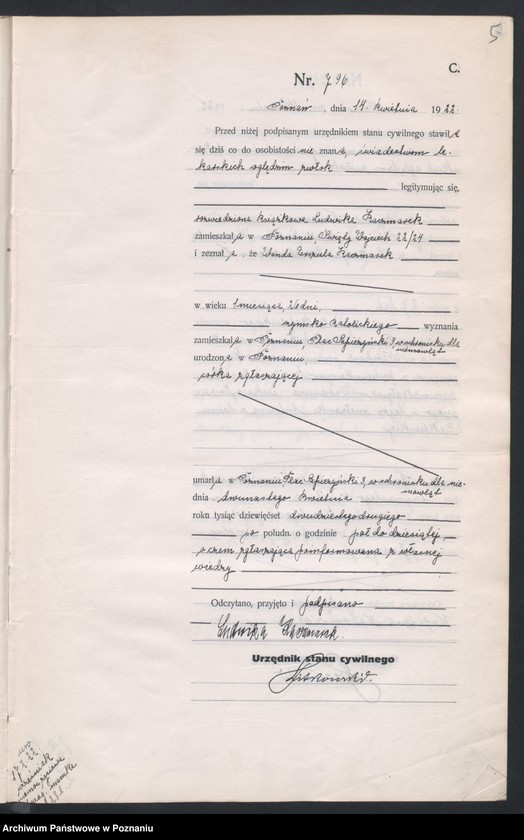 5
C.
Nr. 796
Poznań, dnia 14. kwietnia 1922
Przed niżej podpisanym urzędnikiem stanu cywilnego stawiła
się dziś co do osobistości nie znana, świadectwem le-
karskich oględzin zwłok
legitymując się,
rozwiedziona Ludwika Kaczmarek
zamieszkała w Poznaniu, Święty Wojciech 22/24
i zeznała, że Wanda Urszula Kaczmarek
w wieku 1 miesiąca, 26 dni,
rzymsko katolickiego wyznania
zamieszkała w Poznaniu, Plac Sapieżyński 3, w schronisku dla
niemowląt
urodzona w Poznaniu
córka zgłaszającej
umarła w Poznaniu, Plac Sapieżyński 3, w schronisku dla nie-
mowląt
dnia dwunastego kwietnia
roku tysiąc dziewięćset dwudziestego drugiego
po połudn. o godzinie pół do dziesiątej
o czem zgłaszająca poinformowana z własnej
wiedzy
Odczytano, przyjęto i podpisano
Ludwika Kaczmarek.
Urzędnik stanu cywilnego
Archiwum Państwowe w Poznaniu